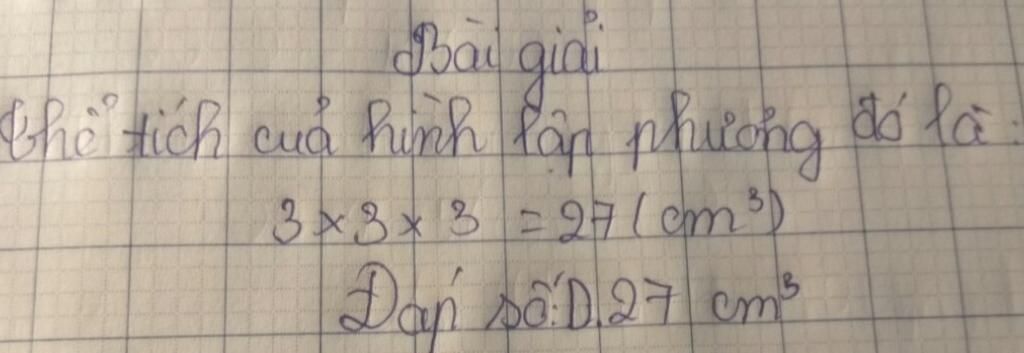 Bài giải
Thể tích của hình lập phương đó là:
3 × 3 × 3 = 27 (cm³)
Đáp số: D. 27 cm³